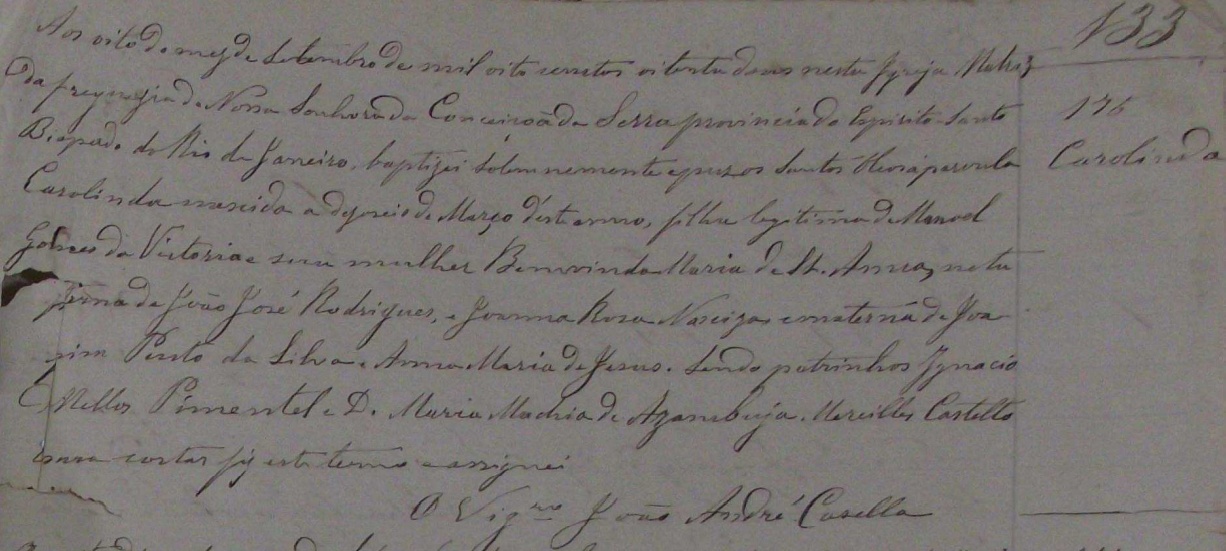 133
Aos oito do mez de Setembro de mil oito centos oitenta dous nesta Igreja Matriz
da freguezia de Nossa Senhora da Conceição da Serra provincia do Espirito Santo
Bispado do Rio de Janeiro, baptizei solemnemente e puz os Santos Oleos á parvula
176
Carolinda
Carolinda nascida a dezeseis de Março d'este anno, filha legitima de Manoel
Gomes da Victoria e sua mulher Bemvinda Maria de St. Anna, neta
de João José Rodrigues, e Joanna Rosa Narciza, e materna de Joa
Pinto da Silva e Anna Maria de Jesus. Sendo padrinhos Ignacio
Mello Pimentel e D. Maria de Azambuja Meirelles Castello
para constar fiz este termo e assignei
O Vigro João André Casella